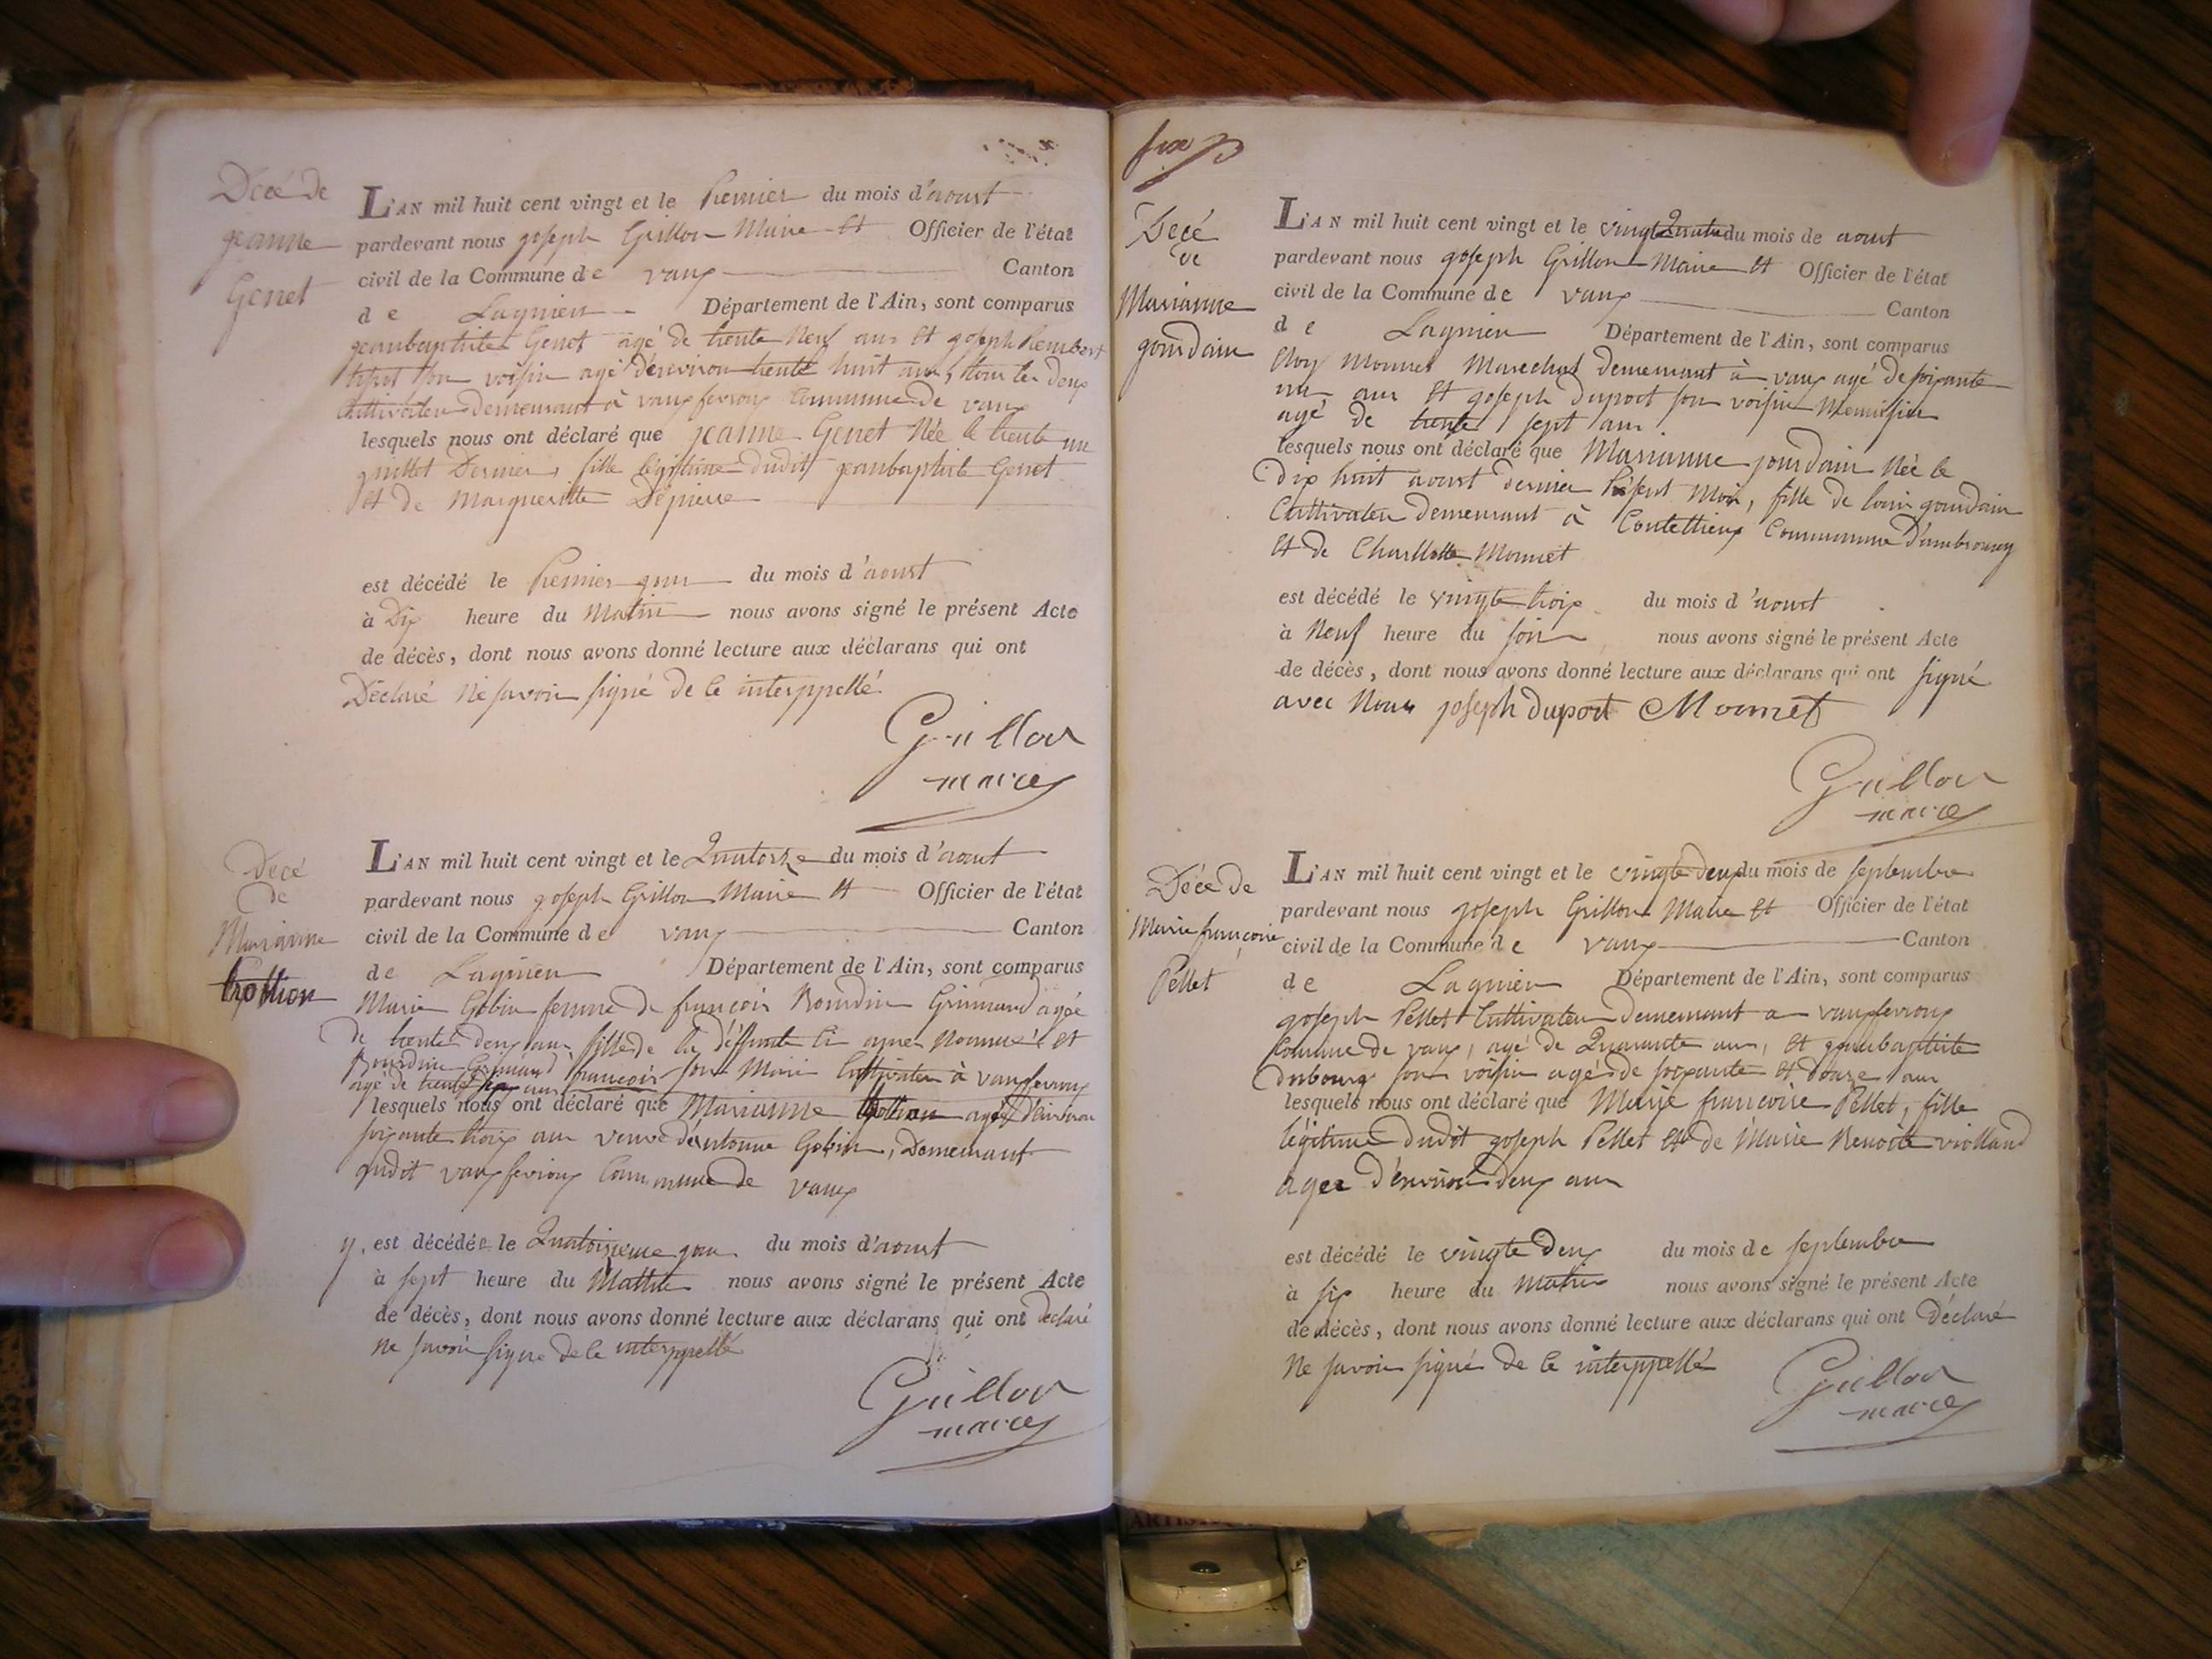 Décé de
jeanne
Genet
L'AN mil huit cent vingt et le Premier du mois d'aoust
pardevant nous joseph Grillon Maire et Officier de l'état
civil de la Commune de vaux Canton
de Lagnieu Département de l'Ain, sont comparus
jeanbaptiste Genet agé de trente Neuf ans et joseph
son voisin agé d'environ trente huit ans, tous les deux
Cultivateur demeurant à vauxfevroux Commune de vaux
lesquels nous ont déclaré que jeanne Genet Née le trente un
juillet Dernier, fille légitime dudit jeanbaptiste Genet
et de Margueritte Depierre
est décédé le Premier jour du mois d'aoust
à Dix heure du Matin nous avons signé le présent Acte
de décès, dont nous avons donné lecture aux déclarans qui ont
Déclaré Ne savoir signé de ce interppellé
Grillon
maire
Décé
de
Marianne
trottion
L'AN mil huit cent vingt et le Quatorze du mois d'aoust
pardevant nous joseph Grillon Maire et Officier de l'état
civil de la Commune de vaux Canton
de Lagnieu Département de l'Ain, sont comparus
Marie Gobin femme de françois Bourdin Grimaud agée
de trente deux ans, fille de la déffunte Ci aprés Nommée et
Bourdin Grimaud françois son Mari Cultivateur à vauxfevroux
agé de trente ans
lesquels nous ont déclaré que Marianne trottion agée d'environ
soixante trois ans veuve d'antoine Gobin, Demeurant
audit vauxfevroux Commune de vaux
y. est décédée le Quatorzieme jour du mois d'aoust
à sept heure du Mattin nous avons signé le présent Acte
de décès, dont nous avons donné lecture aux déclarans qui ont declaré
ne savoir signe de ce interppellé
Grillon
maire
Décé
de
Marianne
jourdain
L'AN mil huit cent vingt et le vingt Quatre du mois de aoust
pardevant nous joseph Grillon Maire et Officier de l'état
civil de la Commune de vaux Canton
de Lagnieu Département de l'Ain, sont comparus
Cloy Monnet Marechal demeurant à vaux agé de soixante
un ans et joseph duport son voisin Menuisier
agé de trente sept ans
lesquels nous ont déclaré que Marianne jourdain Née le
dix huit aoust dernier Présent Mois, fille de louis jourdain
Cultivateur demeurant à Coutellieux Commune D'ambronay
et de Charllotte Monnet
est décédé le vingte trois du mois d'aoust
à Neuf heure du soir nous avons signé le présent Acte
de décès, dont nous avons donné lecture aux déclarans qui ont signé
avec Nous joseph duport Monnet
Grillon
maire
Décé de
Marie françoise
Pellet
L'AN mil huit cent vingt et le vingte deux du mois de septembre
pardevant nous joseph Grillon Maire et Officier de l'état
civil de la Commune de vaux Canton
de Lagnieu Département de l'Ain, sont comparus
joseph Pellet Cultivateur demeurant a vauxfevroux
Commune de vaux, agé de Quarante ans, et jeanbaptiste
Dubourg son voisin agé de soixante et douze ans
lesquels nous ont déclaré que Marie francoise Pellet, fille
légitime dudit joseph Pellet et de Marie Benoite violland
agee d'environ deux ans
est décédé le vingte deux du mois de septembre
à six heure du matin nous avons signé le présent Acte
de décès, dont nous avons donné lecture aux déclarans qui ont Déclaré
Ne savoir signé de ce interppellé
Grillon
maire